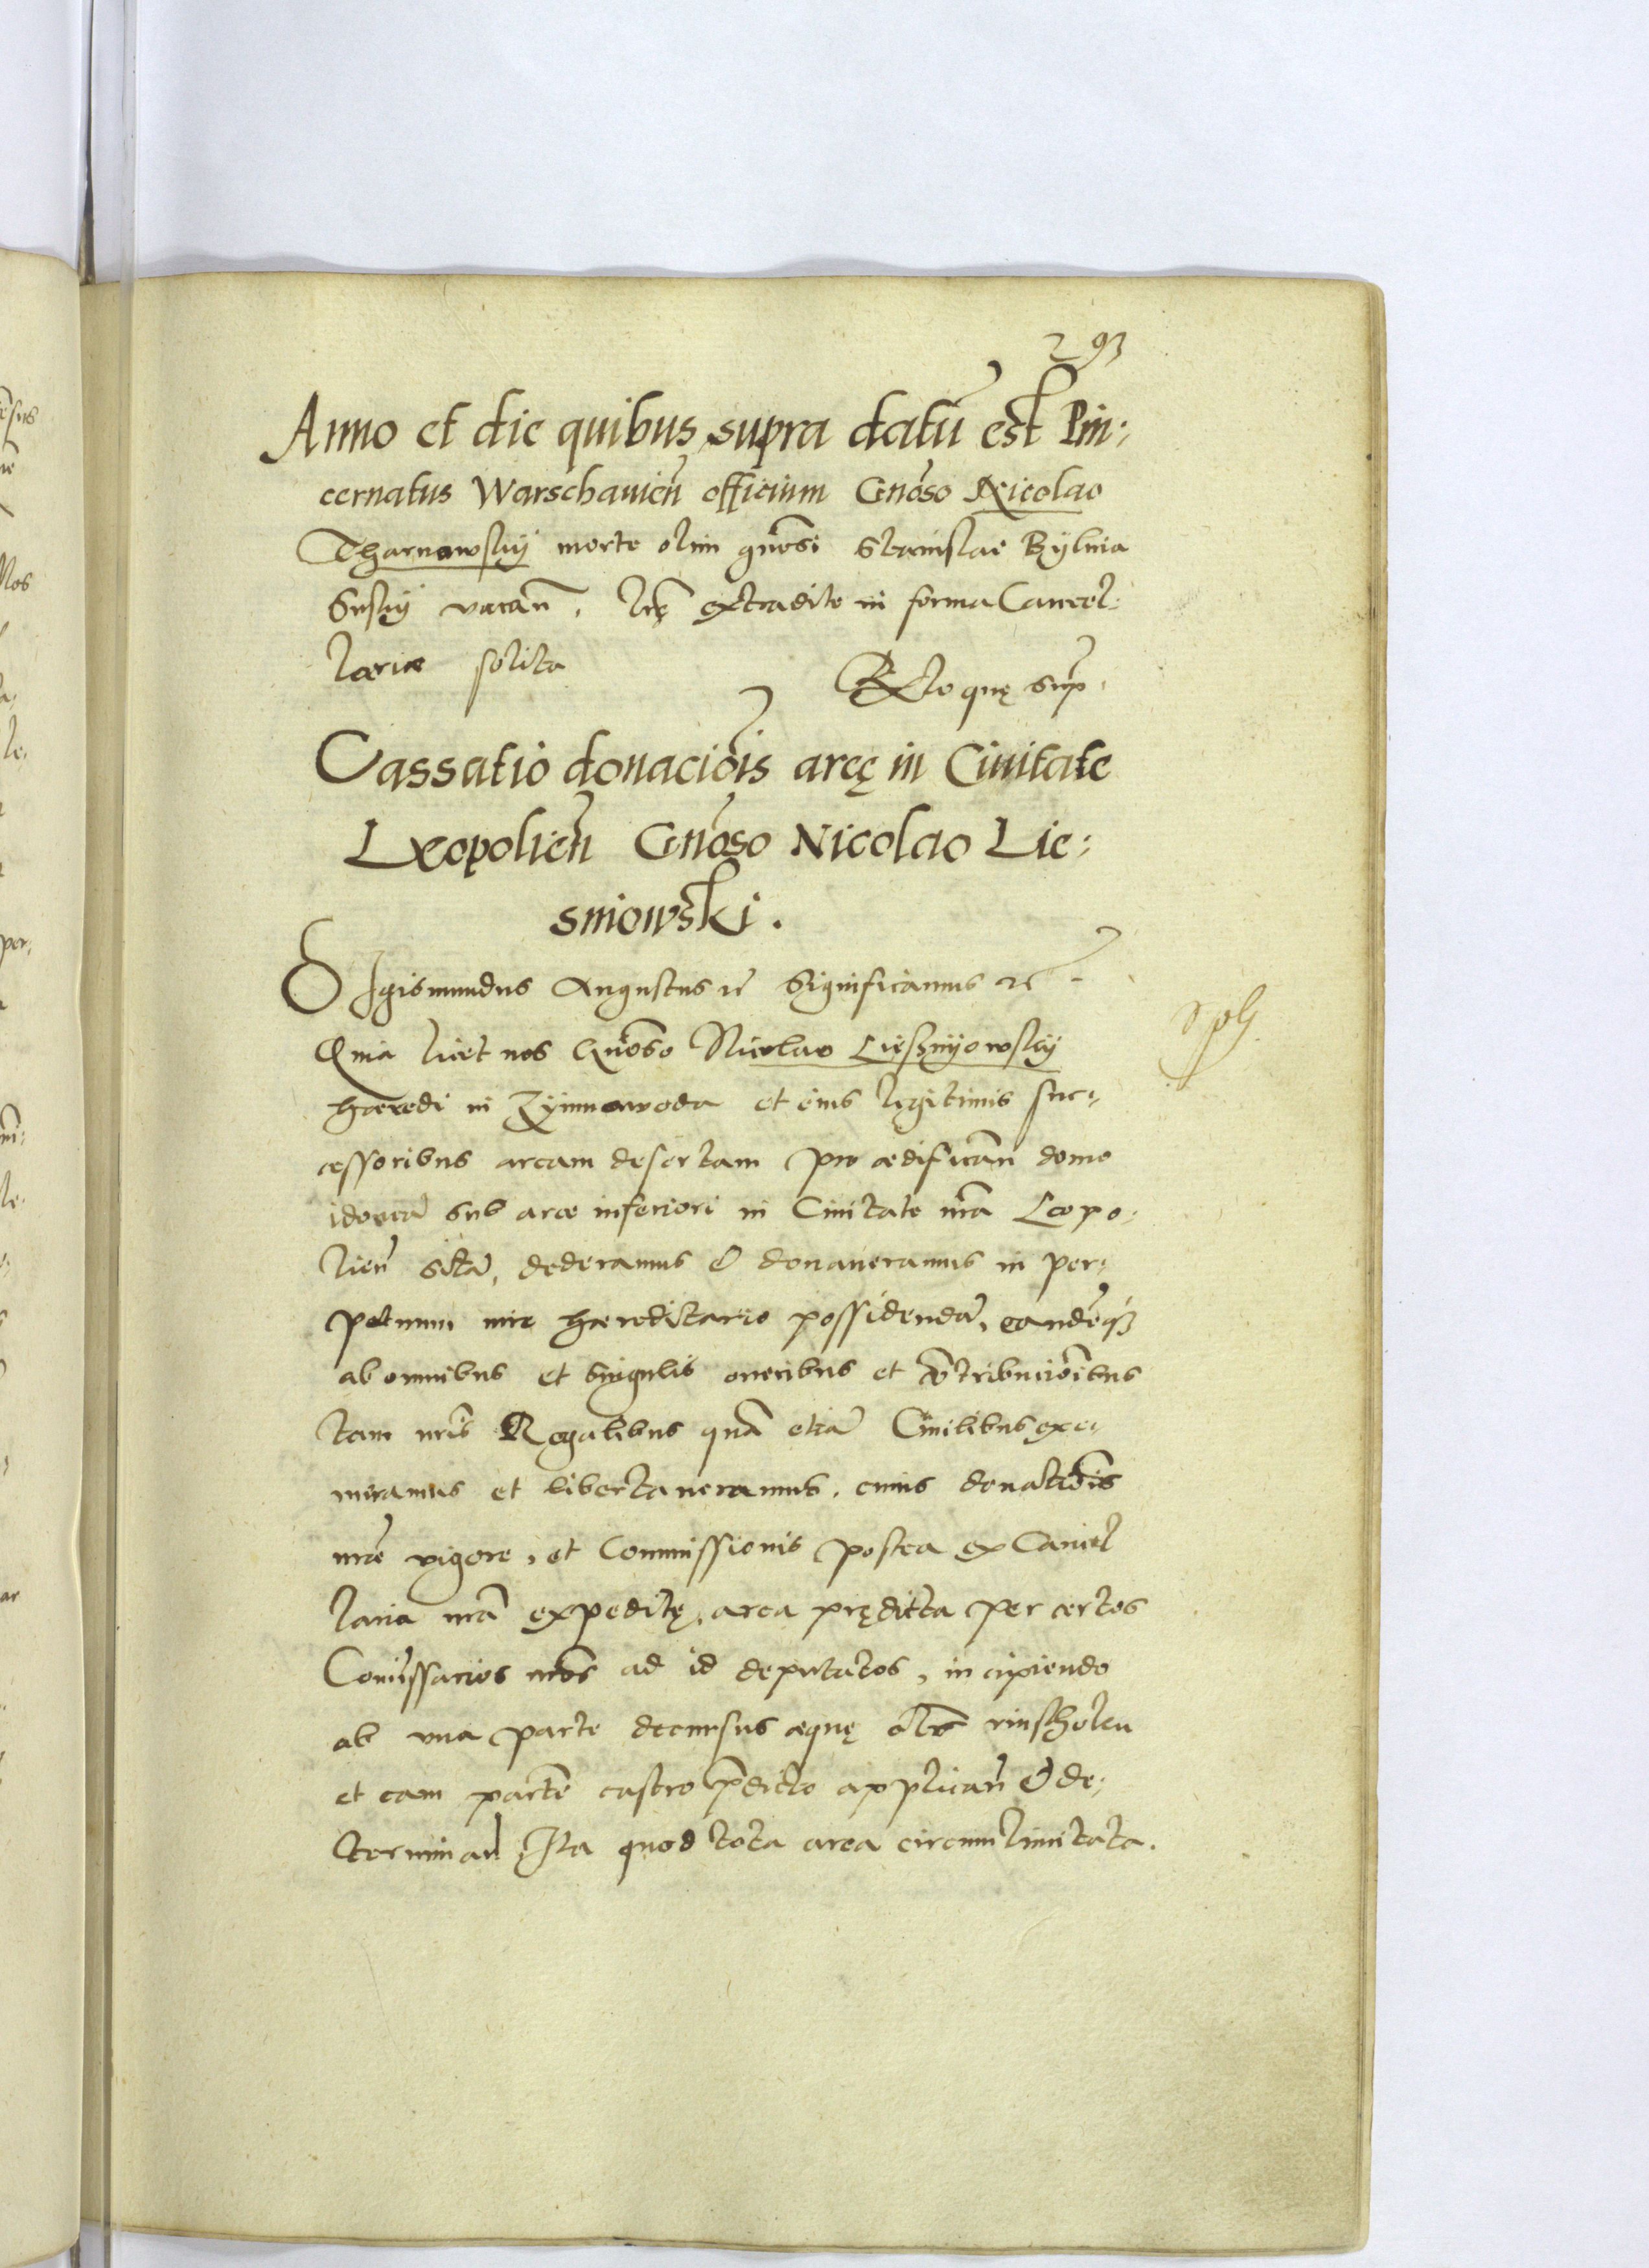 293
Anno et die quibus supra datū est Pin:
cernatus Warschavieñ officium Gnoso Nicolao
Tharnowskij morte olim gnosi Stanislai Bylina
vacañ. lrę extradite in forma Cancel:
lariæ solita
Rlo quę sup.
Cassatio donaciois areę in Civitate
Leopolieñ Gnoso Nicolao Lie:
sniowski.
Sigismundus Augustus rc Significamus rc
Quia licet nos Gnoso Nicolao Lieſznijowskij
hæredi in Zymnawoda et eius legitimis suc:
cessoribus aream desertam pro ædificañ domo
idoneā sub arce inferiori in Civitate nrā Leopo:
lieñ sitā, dederamus & donaveramus in per:
petuum iure hæreditario possidendā, eandēq3
ab omnibus et singulis oneribus et cōtribucioibus
tam nris Regalibus quā etiā Civilibus exe:
meramus et libertaveramus, cuius donatiois
nræ vigore, et Commissionis postea ex Cancel
laria nrā expeditę, area prędicta per certos
Comissarios nros ad id deputatos, incipiendo
ab una parte decursus aquę als rinsztoku
et eam partē castro p̄dicto applicañ & de:
terminañ Ita quod tota area circumlimitata.